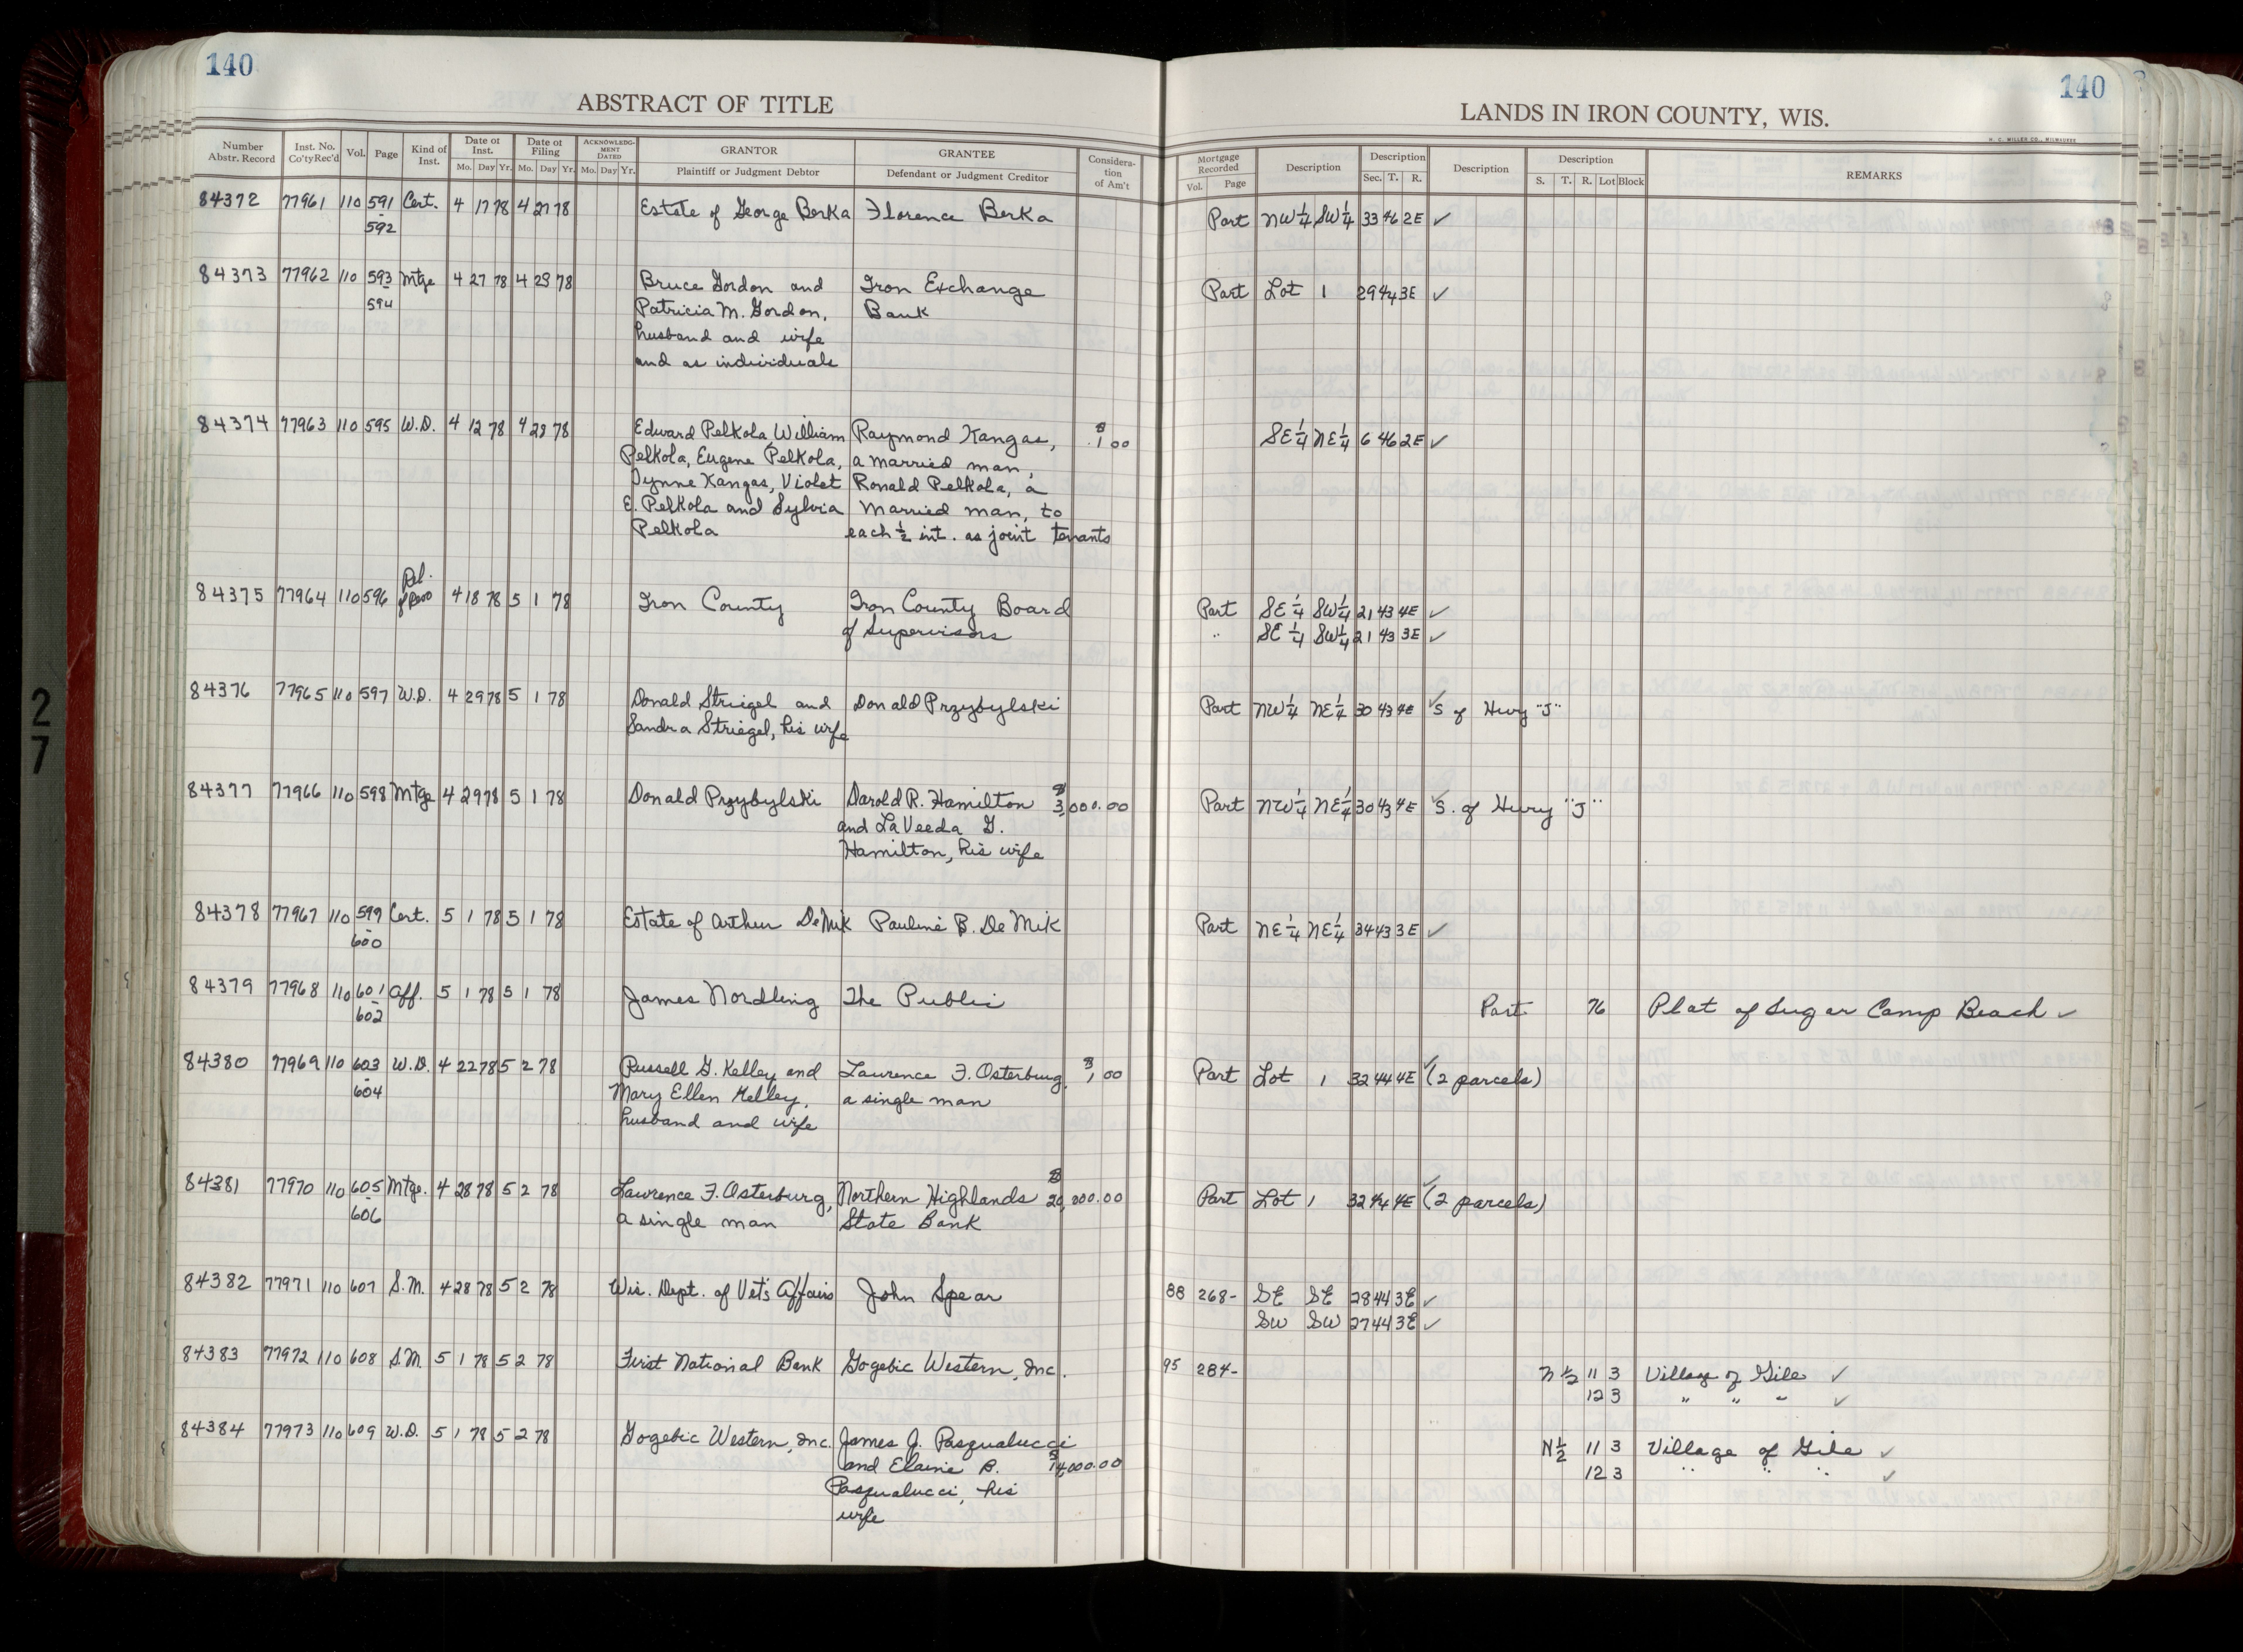 140
ABSTRACT OF TITLE
Number Abstr. Record Inst. No. Co'ty Rec'd Vol. Page Kind of Inst. Date of Inst. Mo. Day Yr. Date of Filing Mo. Day Yr. ACKNOWLEDGMENT DATED Mo. Day Yr. GRANTOR Plaintiff or Judgment Debtor GRANTEE Defendant or Judgment Creditor Consideration of Am't
84372 77961 110 591 Cert. 4 17 78 4 27 78 Estate of George Berka Florence Berka
- 592
84373 77962 110 593 Mtge 4 27 78 4 28 78 Bruce Gordon and Iron Exchange
- 594 Patricia M. Gordon, Bank
husband and wife
and as individuals
84374 77963 110 595 W.D. 4 12 78 4 28 78 Edward Pelkola, William Raymond Kangas, $ 1 00
Pelkola, Eugene Pelkola, a married man,
Lynne Kangas, Violet Ronald Pelkola, a
E. Pelkola and Sylvia Married man, to
Pelkola each ½ int. as joint tenants
84375 77964 110 596 Rel. of Reso 4 18 78 5 1 78 Iron County Iron County Board
of Supervisors
84376 77965 110 597 W.D. 4 29 78 5 1 78 Donald Striegel and Donald Przybylski
Sandra Striegel, his wife
84377 77966 110 598 Mtge 4 29 78 5 1 78 Donald Przybylski Darold R. Hamilton $ 3,000.00
and LaVeeda G.
Hamilton, his wife
84378 77967 110 599 Cert. 5 1 78 5 1 78 Estate of Arthur DeMik Pauline B. De Mik
- 600
84379 77968 110 601 Aff. 5 1 78 5 1 78 James Nordling The Public
- 602
84380 77969 110 603 W.D. 4 22 78 5 2 78 Russell G. Kelley and Lawrence F. Osterburg, $ 1 00
- 604 Mary Ellen Kelley, a single man
husband and wife
84381 77970 110 605 Mtge. 4 28 78 5 2 78 Lawrence F. Osterburg, Northern Highlands $ 20,000.00
- 606 a single man State Bank
84382 77971 110 607 S.M. 4 28 78 5 2 78 Wis. Dept. of Vet's Affairs John Spear
84383 77972 110 608 S.M. 5 1 78 5 2 78 First National Bank Gogebic Western, Inc.
84384 77973 110 609 W.D. 5 1 78 5 2 78 Gogebic Western, Inc. James J. Pasqualucci
and Elaine B. $ 14,000.00
Pasqualucci, his
wife
140
LANDS IN IRON COUNTY, WIS.
H. C. MILLER CO., MILWAUKEE
Mortgage Recorded Vol. Page Description Description Sec. T. R. Description Description S. T. R. Lot Block REMARKS
Part NW¼ SW¼ 33 46 2E ✓
Part Lot 1 29 44 3E ✓
SE¼ NE¼ 6 46 2E ✓
Part SE¼ SW¼ 21 43 4E ✓
" SE¼ SW¼ 21 43 3E ✓
Part NW¼ NE¼ 30 43 4E ✓ S of Hwy "J"
Part NW¼ NE¼ 30 43 4E ✓ S. of Hwy "J"
Part NE¼ NE¼ 34 43 3E ✓
Part 76 Plat of Sugar Camp Beach ✓
Part Lot 1 32 44 4E ✓ (2 parcels)
Part Lot 1 32 44 4E ✓ (2 parcels)
88 268- SE SE 28 44 3E ✓
SW SW 27 44 3E ✓
95 284- N½ 11 3 Village of Gile ✓
12 3 " " " ✓
N½ 11 3 Village of Gile ✓
12 3 " " " ✓
27